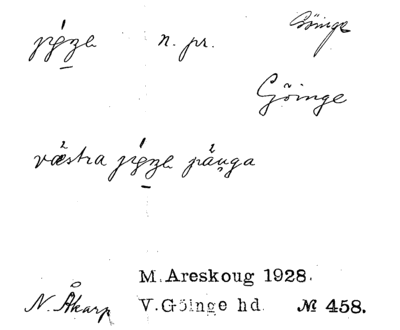 jiŋe n. pr. Göinge
Göinge
västra jiŋe
M. Areskoug 1928.
N. Åkarp V. Göinge hd. № 458.